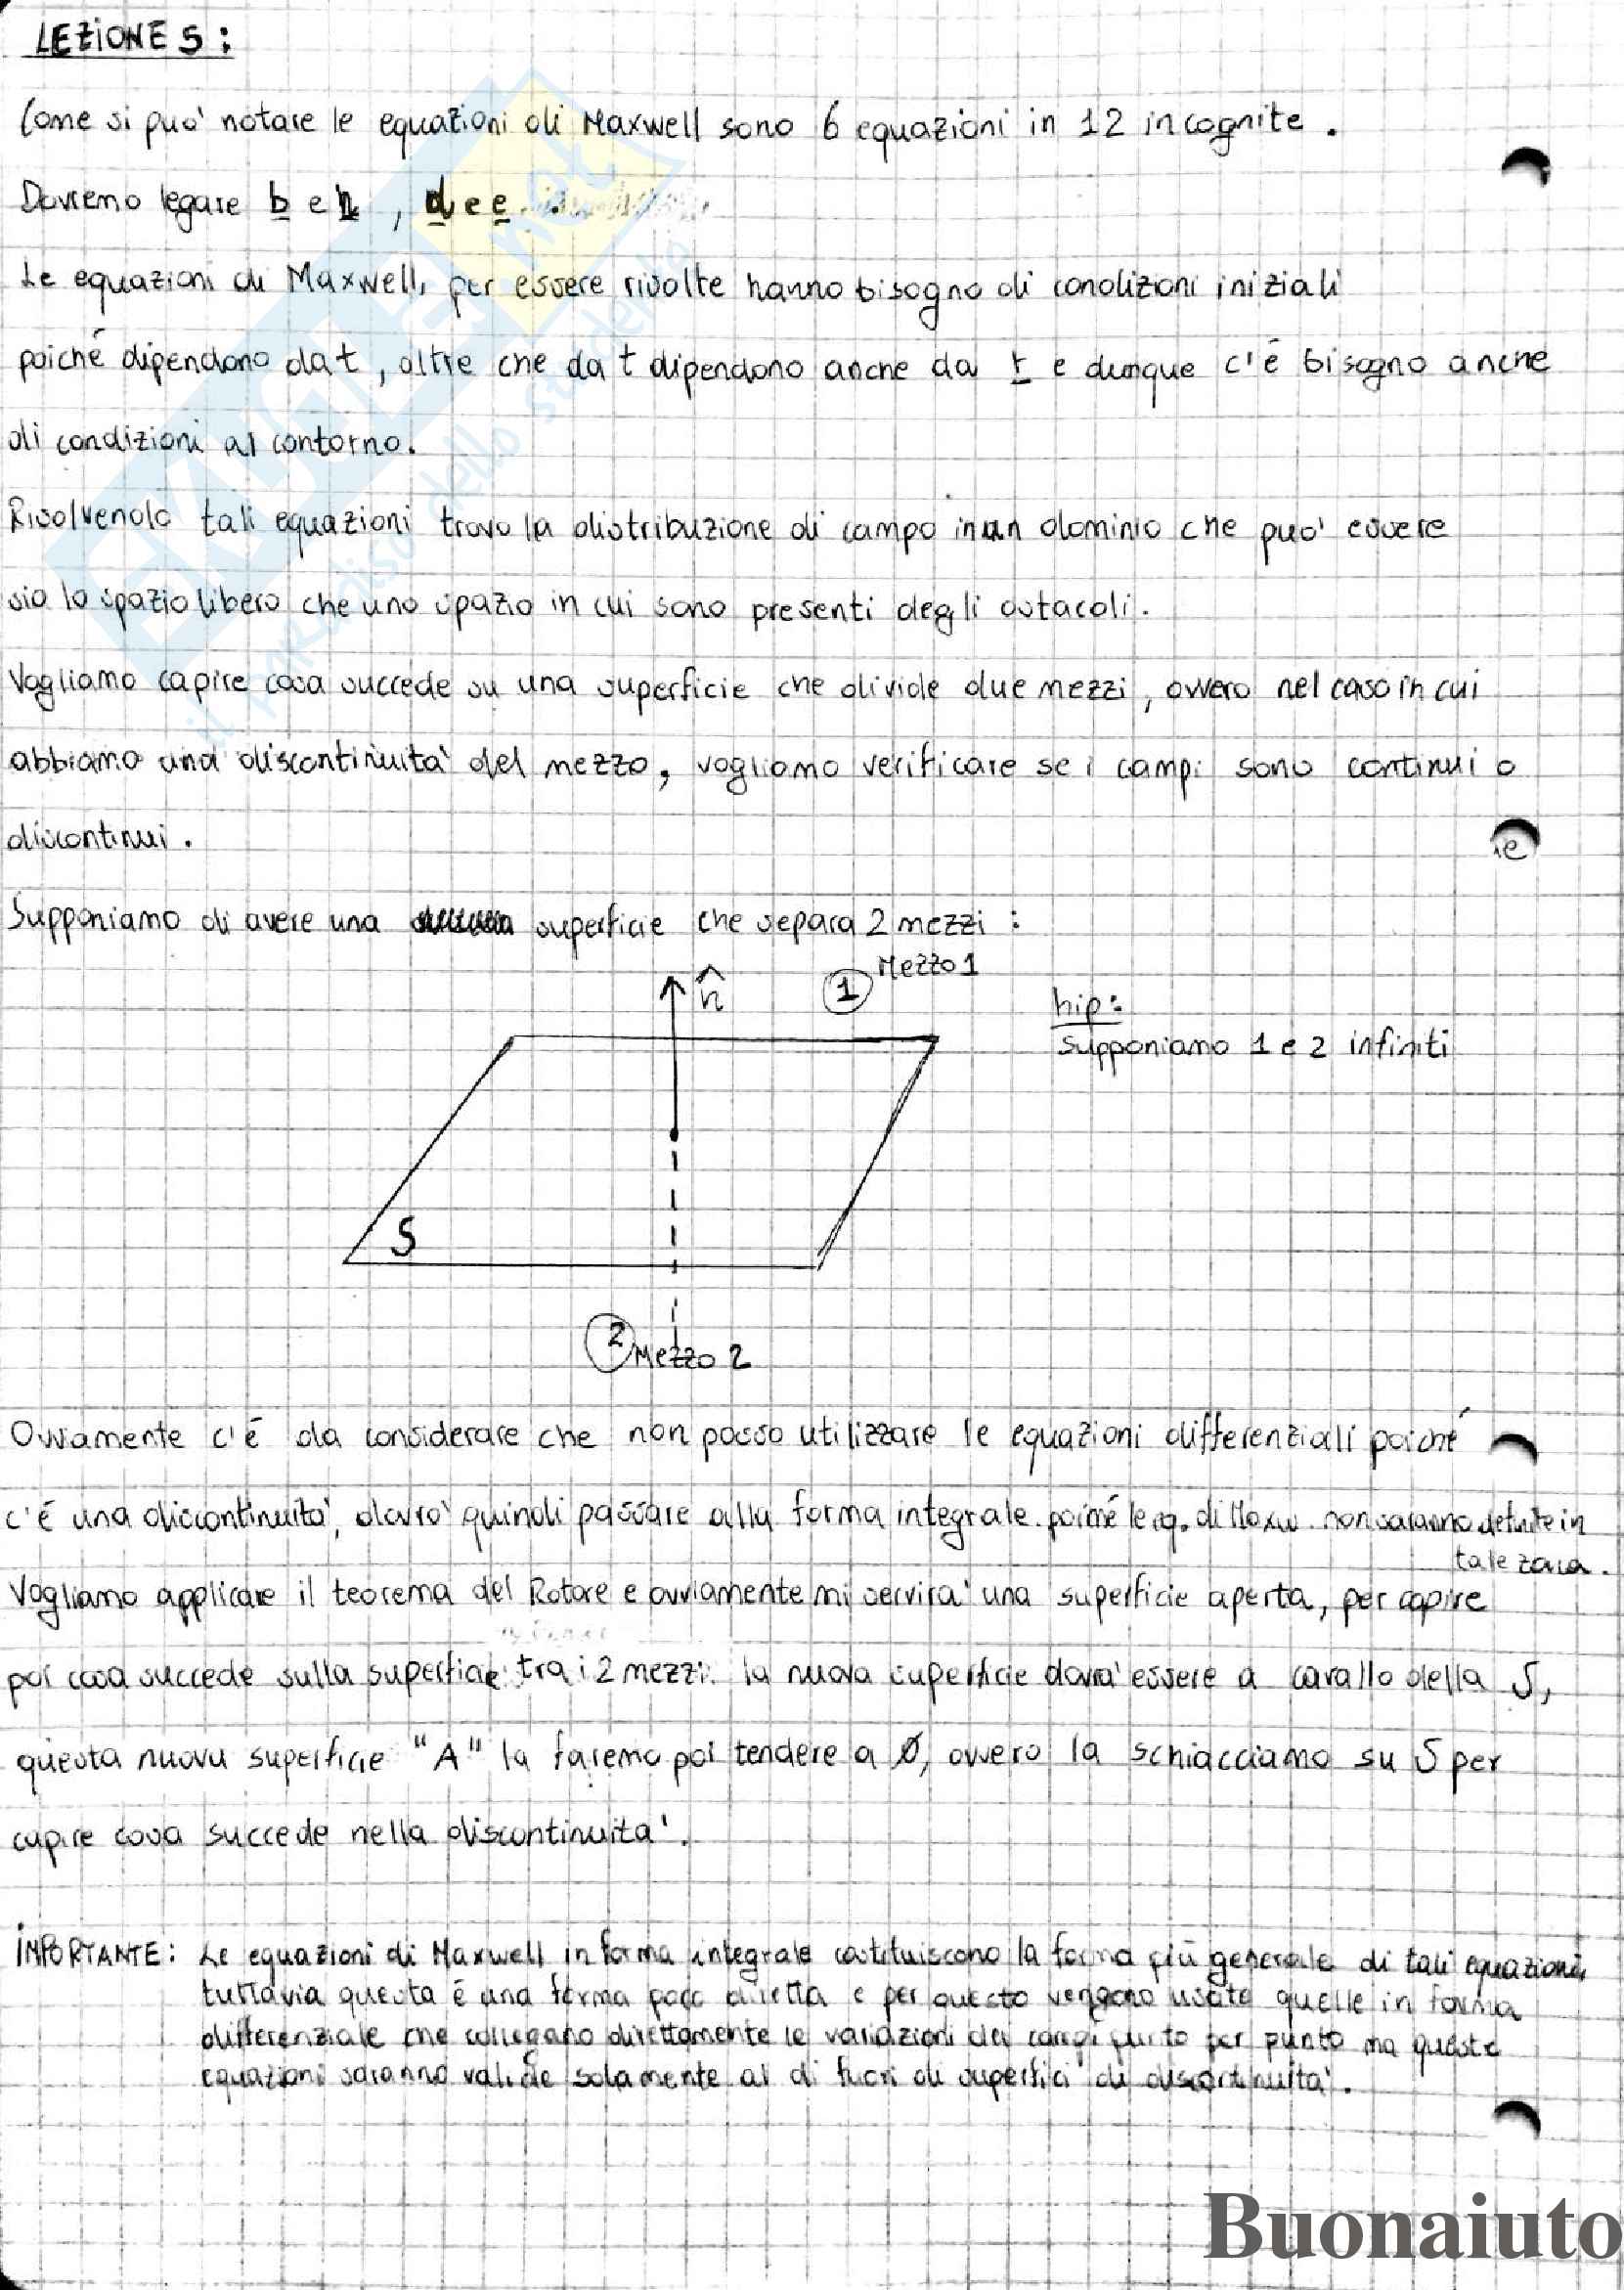 LEZIONE 5 :
Come si puo' notare le equazioni di Maxwell sono 6 equazioni in 12 incognite .
Dovremo legare b e h , d e e .
Le equazioni di Maxwell, per essere risolte hanno bisogno di condizioni iniziali
poiché dipendono da t , oltre che da t dipendono anche da r e dunque c'é bisogno anche
di condizioni al contorno.
Risolvendo tali equazioni trovo la distribuzione di campo in un dominio che puo' essere
sia lo spazio libero che uno spazio in cui sono presenti degli ostacoli.
Vogliamo capire cosa succede su una superficie che divide due mezzi , ovvero nel caso in cui
abbiamo una discontinuita' del mezzo, vogliamo verificare se i campi sono continui o
discontinui .
Supponiamo di avere una superficie che separa 2 mezzi :
n̂ 1 Mezzo 1
hip:
Supponiamo 1 e 2 infiniti
S
2 Mezzo 2
Ovviamente c'é da considerare che non posso utilizzare le equazioni differenziali poiché
c'é una discontinuita', dovro' quindi passare alla forma integrale. poiché le eq. di Maxw. non saranno definite in
tale zona.
Vogliamo applicare il teorema del Rotore e ovviamente mi servira' una superficie aperta, per capire
poi cosa succede sulla superficie tra i 2 mezzi. la nuova superficie dovra' essere a cavallo della S,
questa nuova superficie "A" la faremo poi tendere a 0, ovvero la schiacciamo su S per
capire cosa succede nella discontinuita'.
IMPORTANTE: Le equazioni di Maxwell in forma integrale costituiscono la forma più generale di tali equazioni,
tuttavia questa é una forma poco diretta e per questo vengono usate quelle in forma
differenziale che collegano direttamente le variazioni dei campi punto per punto ma queste
equazioni saranno valide solamente al di fuori di superfici di discontinuita'.
Buonaiuto